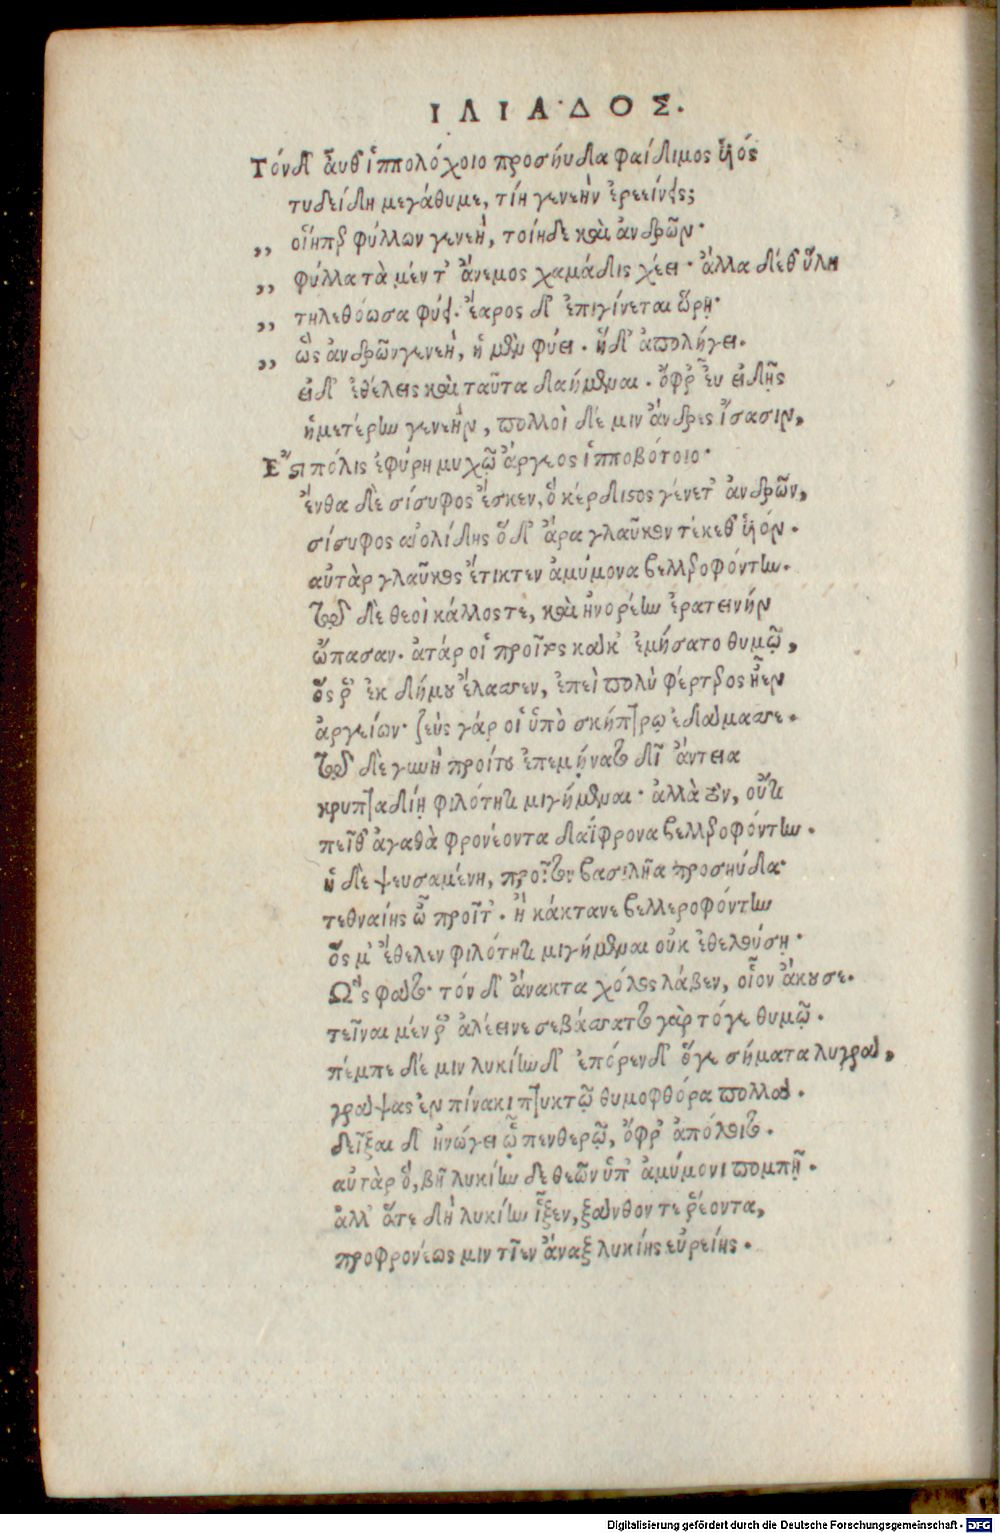 ΙΛΙΑΔΟΣ.
Τόνδ' αὖθ' ἱππολόχοιο προσηύδα φαίδιμος ὑιός
τυδείδη μεγάθυμε, τίη γενεὴν ἐρεείνεις;
,, οἵηπερ φύλλων γενεὴ, τοίηδε καὶ ἀνδρῶν·
,, φύλλα τὰ μέν τ' ἄνεμος χαμάδις χέει· ἄλλα δέθ' ὕλη
,, τηλεθόωσα φύει. ἔαρος δ' ἐπιγίνεται ὥρη·
,, ὣς ἀνδρῶν γενεὴ, ἡ μὲν φύει. ἥ δ' ἀπολήγει.
εἰ δ' ἐθέλεις καὶ ταῦτα δαήμεναι. ὄφρ' εὖ εἰδῇς
ἡμετέρην γενεὴν, πολλοὶ δέ μιν ἄνδρες ἴσασιν,
Ἔστι πόλις ἐφύρη μυχῷ ἄργεος ἱπποβότοιο·
ἔνθα δὲ σίσυφος ἔσκεν, ὃ κέρδιστος γένετ' ἀνδρῶν,
σίσυφος αἰολίδης ὅ δ' ἄρα γλαῦκον τέκεθ' ὑιόν.
αὐτὰρ γλαῦκος ἔτικτεν ἀμύμονα βελλεροφόντην.
τῷ δὲ θεοὶ κάλλος τε, καὶ ἠνορέην ἐρατεινήν
ὤπασαν. ἀτάρ οἱ προῖτος κάκ' ἐμήσατο θυμῷ,
ὅς ῥ' ἐκ δήμου ἔλασσεν, ἐπεὶ πολὺ φέρτερος ἦεν
ἀργείων· ζεὺς γάρ οἱ ὑπὸ σκήπτρῳ ἐδάμασσε.
τῷ δὲ γυνὴ προίτου ἐπεμήνατο δῖ' ἄντεια
κρυπταδίῃ φιλότητι μιγήμεναι· ἀλλὰ τὸν, οὔτι
πεῖθ' ἀγαθὰ φρονέοντα δαΐφρονα βελλεροφόντην.
ἡ δὲ ψευσαμένη, προῖτον βασιλῆα προσηύδα·
τεθναίης ὦ προῖτ'. ἢ κάκτανε βελλεροφόντην
ὅς μ' ἔθελεν φιλότητι μιγήμεναι οὐκ ἐθελούσῃ·
Ὣς φάτο· τόν δ' ἄνακτα χόλος λάβεν, οἷον ἄκουσε.
τεῖναι μέν ῥ' ἀλέεινε σεβάσσατο γὰρ τόγε θυμῷ.
πέμπε δέ μιν λυκίην δ' ἐπόρενδ' ὅγε σήματα λυγρά,
γράψας ἐν πίνακι πτυκτῷ θυμοφθόρα πολλά.
δεῖξαι δ' ἠνώγει ᾧ πενθερῷ, ὄφρ' ἀπόλοιτο.
αὐτὰρ ὁ, βῆ λυκίην δε θεῶν ὑπ' ἀμύμονι πομπῇ.
ἀλλ' ὅτε δὴ λυκίην ἷξεν, ξάνθον τε ῥέοντα,
προφρονέως μιν τῖεν ἄναξ λυκίης εὐρείης.
Digitalisierung gefördert durch die Deutsche Forschungsgemeinschaft - DFG